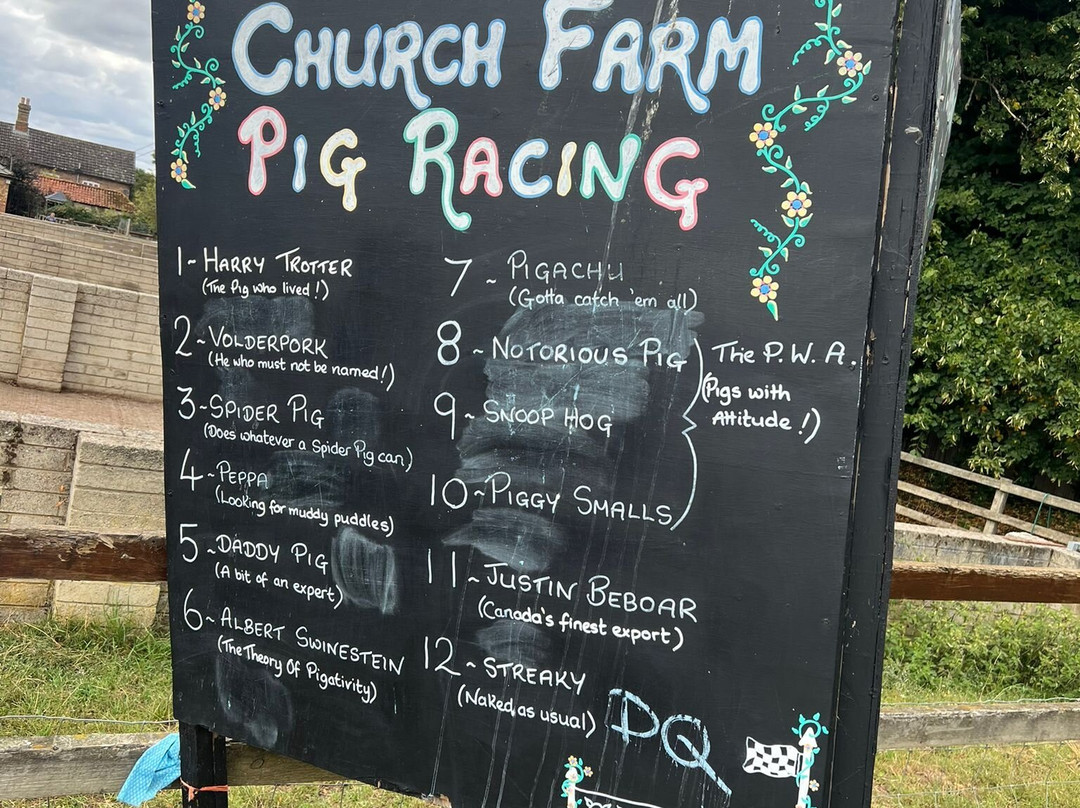 CHURCH FARM
PIG RACING
1~HARRY TROTTER
(The Pig who lived!)
2~VOLDERPORK
(He who must not be named!)
3~SPIDER PIG
(Does whatever a Spider Pig can)
4~PEPPA
(Looking for muddy puddles)
5~DADDY PIG
(A bit of an expert)
6~ALBERT SWINESTEIN
(The Theory Of Pigativity)
7~PIGACHU
(Gotta catch 'em all)
8~NOTORIOUS PIG
9~SNOOP HOG
10~PIGGY SMALLS
The P.W.A.
(Pigs with
Attitude!)
11~JUSTIN BEBOAR
(Canada's finest export)
12~STREAKY
(Naked as usual)
DQ